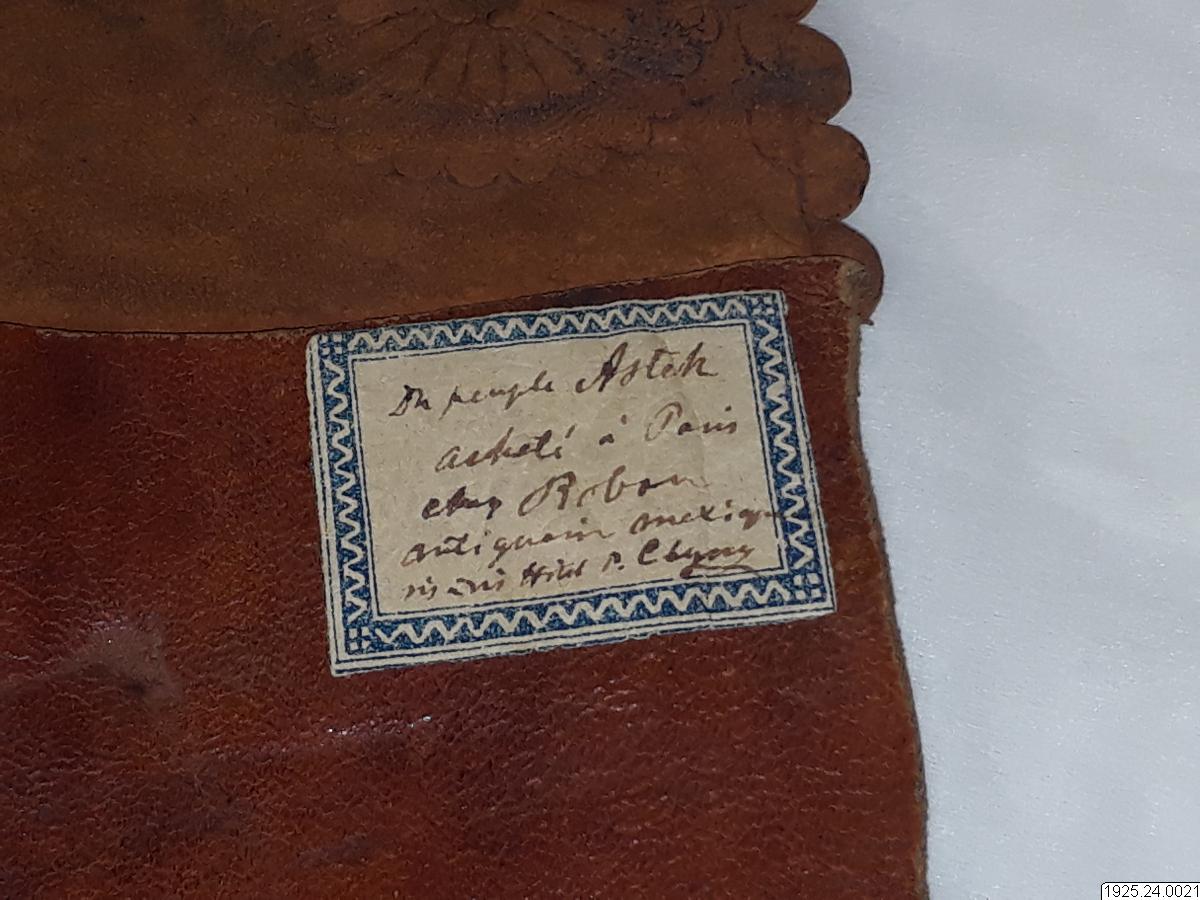 Du peuple Astek
acheté à Paris
chez Boban
antiquaire mexique
vis à vis Hôtel Clugny
1925.24.0021